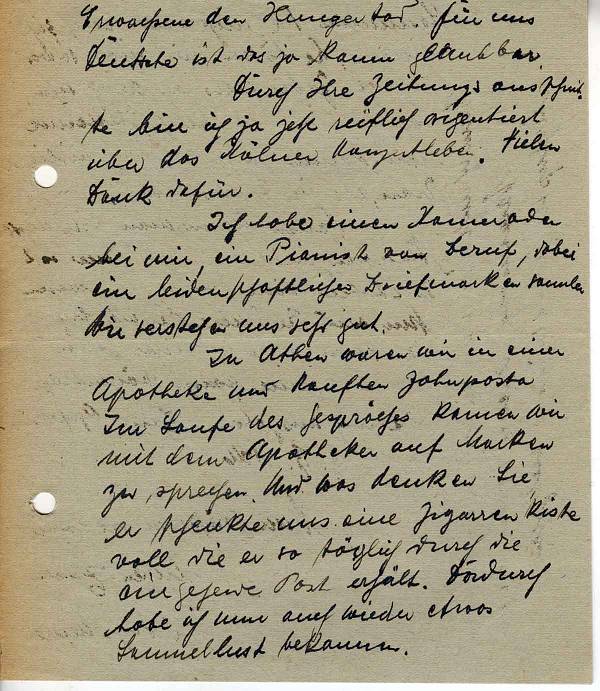 Erwachsene den Hungertod. Für uns
Deutsche ist das ja kaum glaubbar.
Durch Ihre Zeitungsausschnit-
te bin ich ja jetzt reiflich orientiert
über das Kölner Konzertleben. Vielen
Dank dafür.
Ich habe einen Kameraden
bei mir, ein Pianist von Beruf, dabei
ein leidenschaftlicher Briefmarkensammler
Wir verstehen uns sehr gut.
In Athen waren wir in einer
Apotheke und kauften Zahnpasta
Im Laufe des Gespräches kamen wir
mit dem Apotheker auf Marken
zu sprechen. Und was denken Sie
er schenkte uns eine Zigarrenkiste
voll die er so täglich durch die
eingehende Post erhält. Dadurch
habe ich nun auch wieder etwas
Sammellust bekommen.